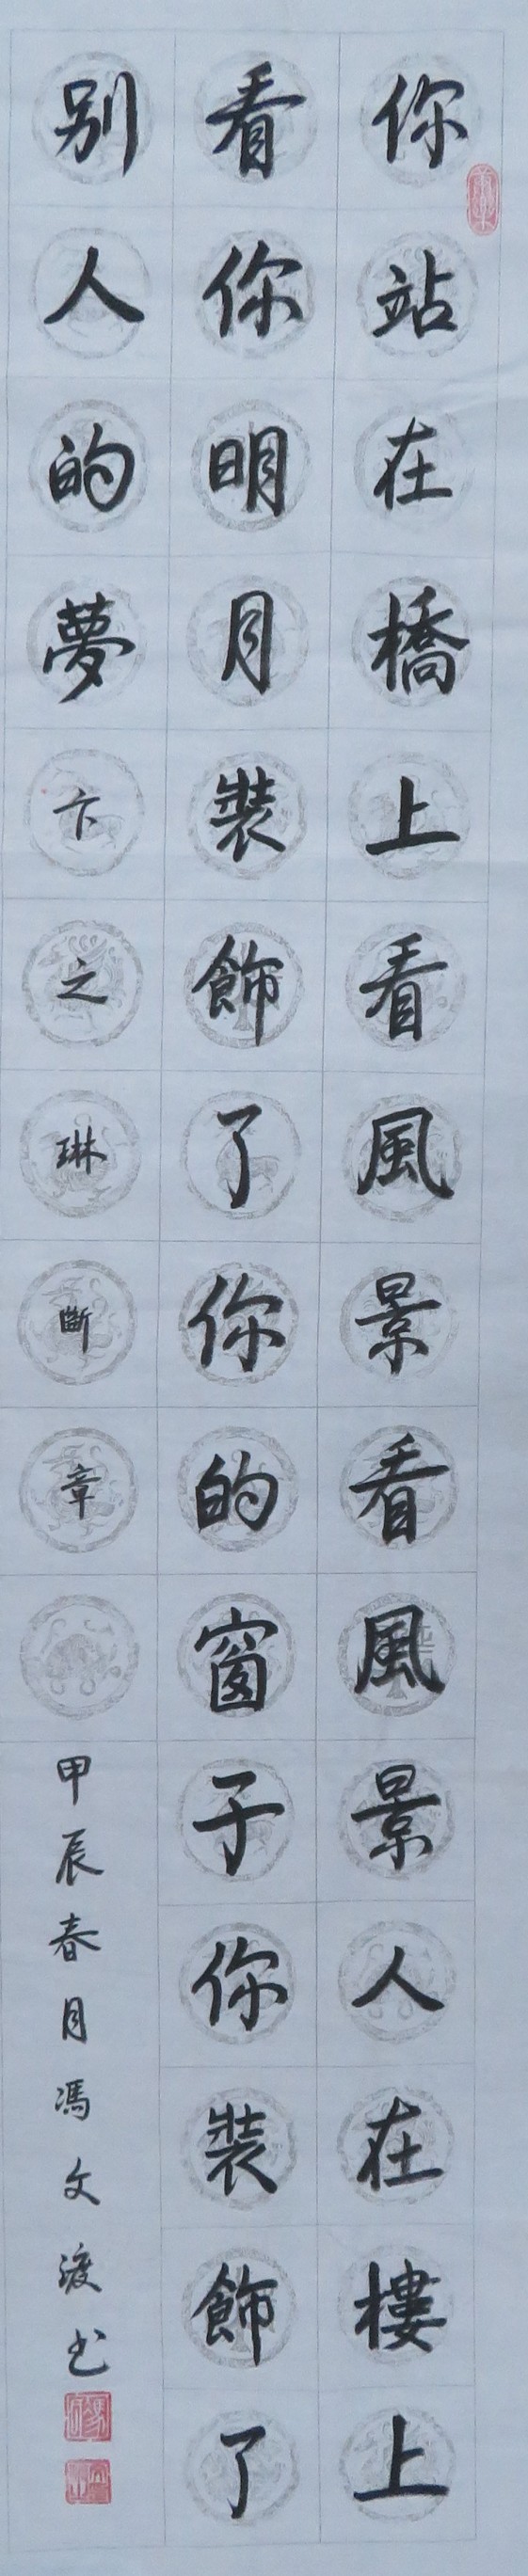 你站在橋上看風景看風景人在樓上
看你明月裝飾了你的窗子你裝飾了
别人的夢卞之琳斷章
甲辰春月馮文渡书